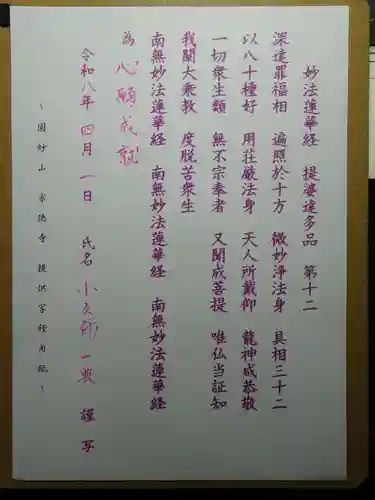 妙法蓮華経 提婆達多品 第十二
深達罪福相 遍照於十方 微妙浄法身 具相三十二
以八十種好 用荘厳法身 天人所戴仰 龍神咸恭敬
一切衆生類 無不宗奉者 又聞成菩提 唯仏当証知
我闡大乗教 度脱苦衆生
南無妙法蓮華経 南無妙法蓮華経 南無妙法蓮華経
為 心願成就
令和八年 四月 一日 氏名 小久保 一 謹写
~圓妙山 宗徳寺 提供写経用紙~